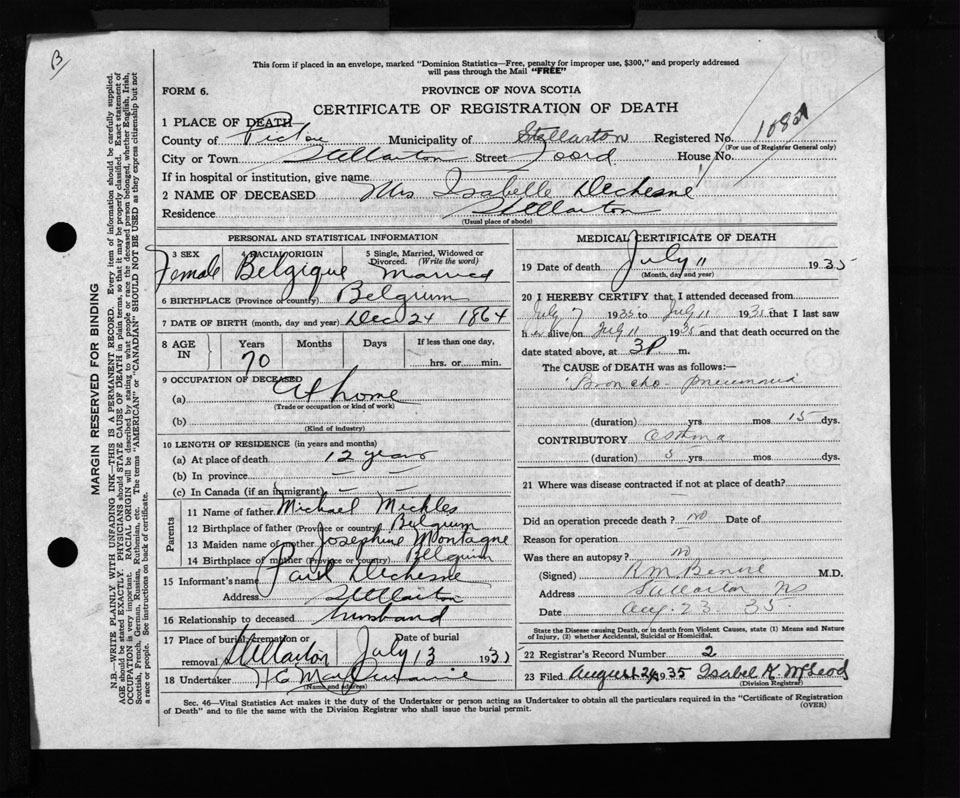 B
This form if placed in an envelope, marked "Dominion Statistics—Free, penalty for improper use, $300," and properly addressed
will pass through the Mail "FREE"
FORM 6. PROVINCE OF NOVA SCOTIA
CERTIFICATE OF REGISTRATION OF DEATH
1 PLACE OF DEATH
County of Pictou Municipality of Stellarton Registered No.
(For use of Registrar General only)
City or Town Stellarton Street Foord House No.
If in hospital or institution, give name
2 NAME OF DECEASED Mrs Isabelle Dechesne
Residence Stellarton
(Usual place of abode)
PERSONAL AND STATISTICAL INFORMATION
3 SEX 4 RACIAL ORIGIN 5 Single, Married, Widowed or
Divorced. (Write the word)
Female Belgique Married
6 BIRTHPLACE (Province or country) Belgium
7 DATE OF BIRTH (month, day and year) Dec 24 1864
8 AGE IN Years Months Days If less than one day,
70 hrs. or min.
9 OCCUPATION OF DECEASED
(a) At home
(Trade or occupation or kind of work)
(b)
(Kind of industry)
10 LENGTH OF RESIDENCE (in years and months)
(a) At place of death 12 years
(b) In province —
(c) In Canada (if an immigrant) — —
Parents
11 Name of father Michael Mickles
12 Birthplace of father (Province or country) Belgium
13 Maiden name of mother Josephine Montagne
14 Birthplace of mother (Province or country) Belgium
15 Informant's name Paul Dechesne
Address Stellarton
16 Relationship to deceased husband
17 Place of burial, cremation or Date of burial
removal Stellarton July 13 193
18 Undertaker H G
(Name and address)
MEDICAL CERTIFICATE OF DEATH
19 Date of death July 11 1935
(Month, day and year)
20 I HEREBY CERTIFY that I attended deceased from
July 7 1935 to July 11 1935 that I last saw
h er alive on July 11 1935 and that death occurred on
date stated above, at 3P m.
The CAUSE OF DEATH was as follows:—
Broncho-pneumonia
(duration) yrs mos 15 dys.
CONTRIBUTORY Astma
(duration) 5 yrs mos. dys.
21 Where was disease contracted if not at place of death?
Did an operation precede death? no Date of
Reason for operation
Was there an autopsy? no
(Signed) M.D.
Address Stellarton NS
Date Aug. 23 35.
State the Disease causing Death, or in death from Violent Causes, state (1) Means and Nature
of Injury, (2) whether Accidental, Suicidal or Homicidal.
22 Registrar's Record Number 2
23 Filed August 1935 Isabel K. McLeod
(Division Registrar)
Sec. 46—Vital Statistics Act makes it the duty of the Undertaker or person acting as Undertaker to obtain all the particulars required in the "Certificate of Registration
of Death" and to file the same with the Division Registrar who shall issue the burial permit.
(OVER)
MARGIN RESERVED FOR BINDING
N.B.—WRITE PLAINLY WITH UNFADING INK—THIS IS A PERMANENT RECORD. Every item of information should be carefully supplied.
AGE should be stated EXACTLY. PHYSICIANS should STATE CAUSE OF DEATH in plain terms, so that it may be properly classified. Exact statement of
OCCUPATION is very important. RACIAL ORIGIN will be described by stating to what people or race the deceased person belonged, whether English, Irish,
Scottish, French, German, Russian, Ruthenian, etc. The terms "AMERICAN" or "CANADIAN" SHOULD NOT BE USED as they express citizenship but not
a race or people. See instructions on back of certificate.